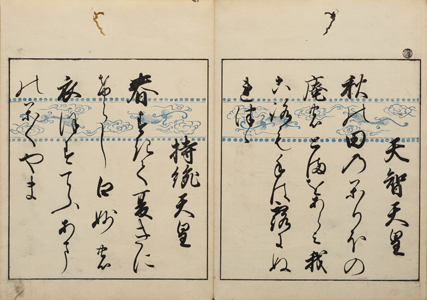 天智天皇
秋の田のかりほの
庵のとまをあらみ我
ころもては露にぬ
れつゝ
持統天皇
春すきて夏きに
けらし白妙の
衣ほすてふあま
のかくやま